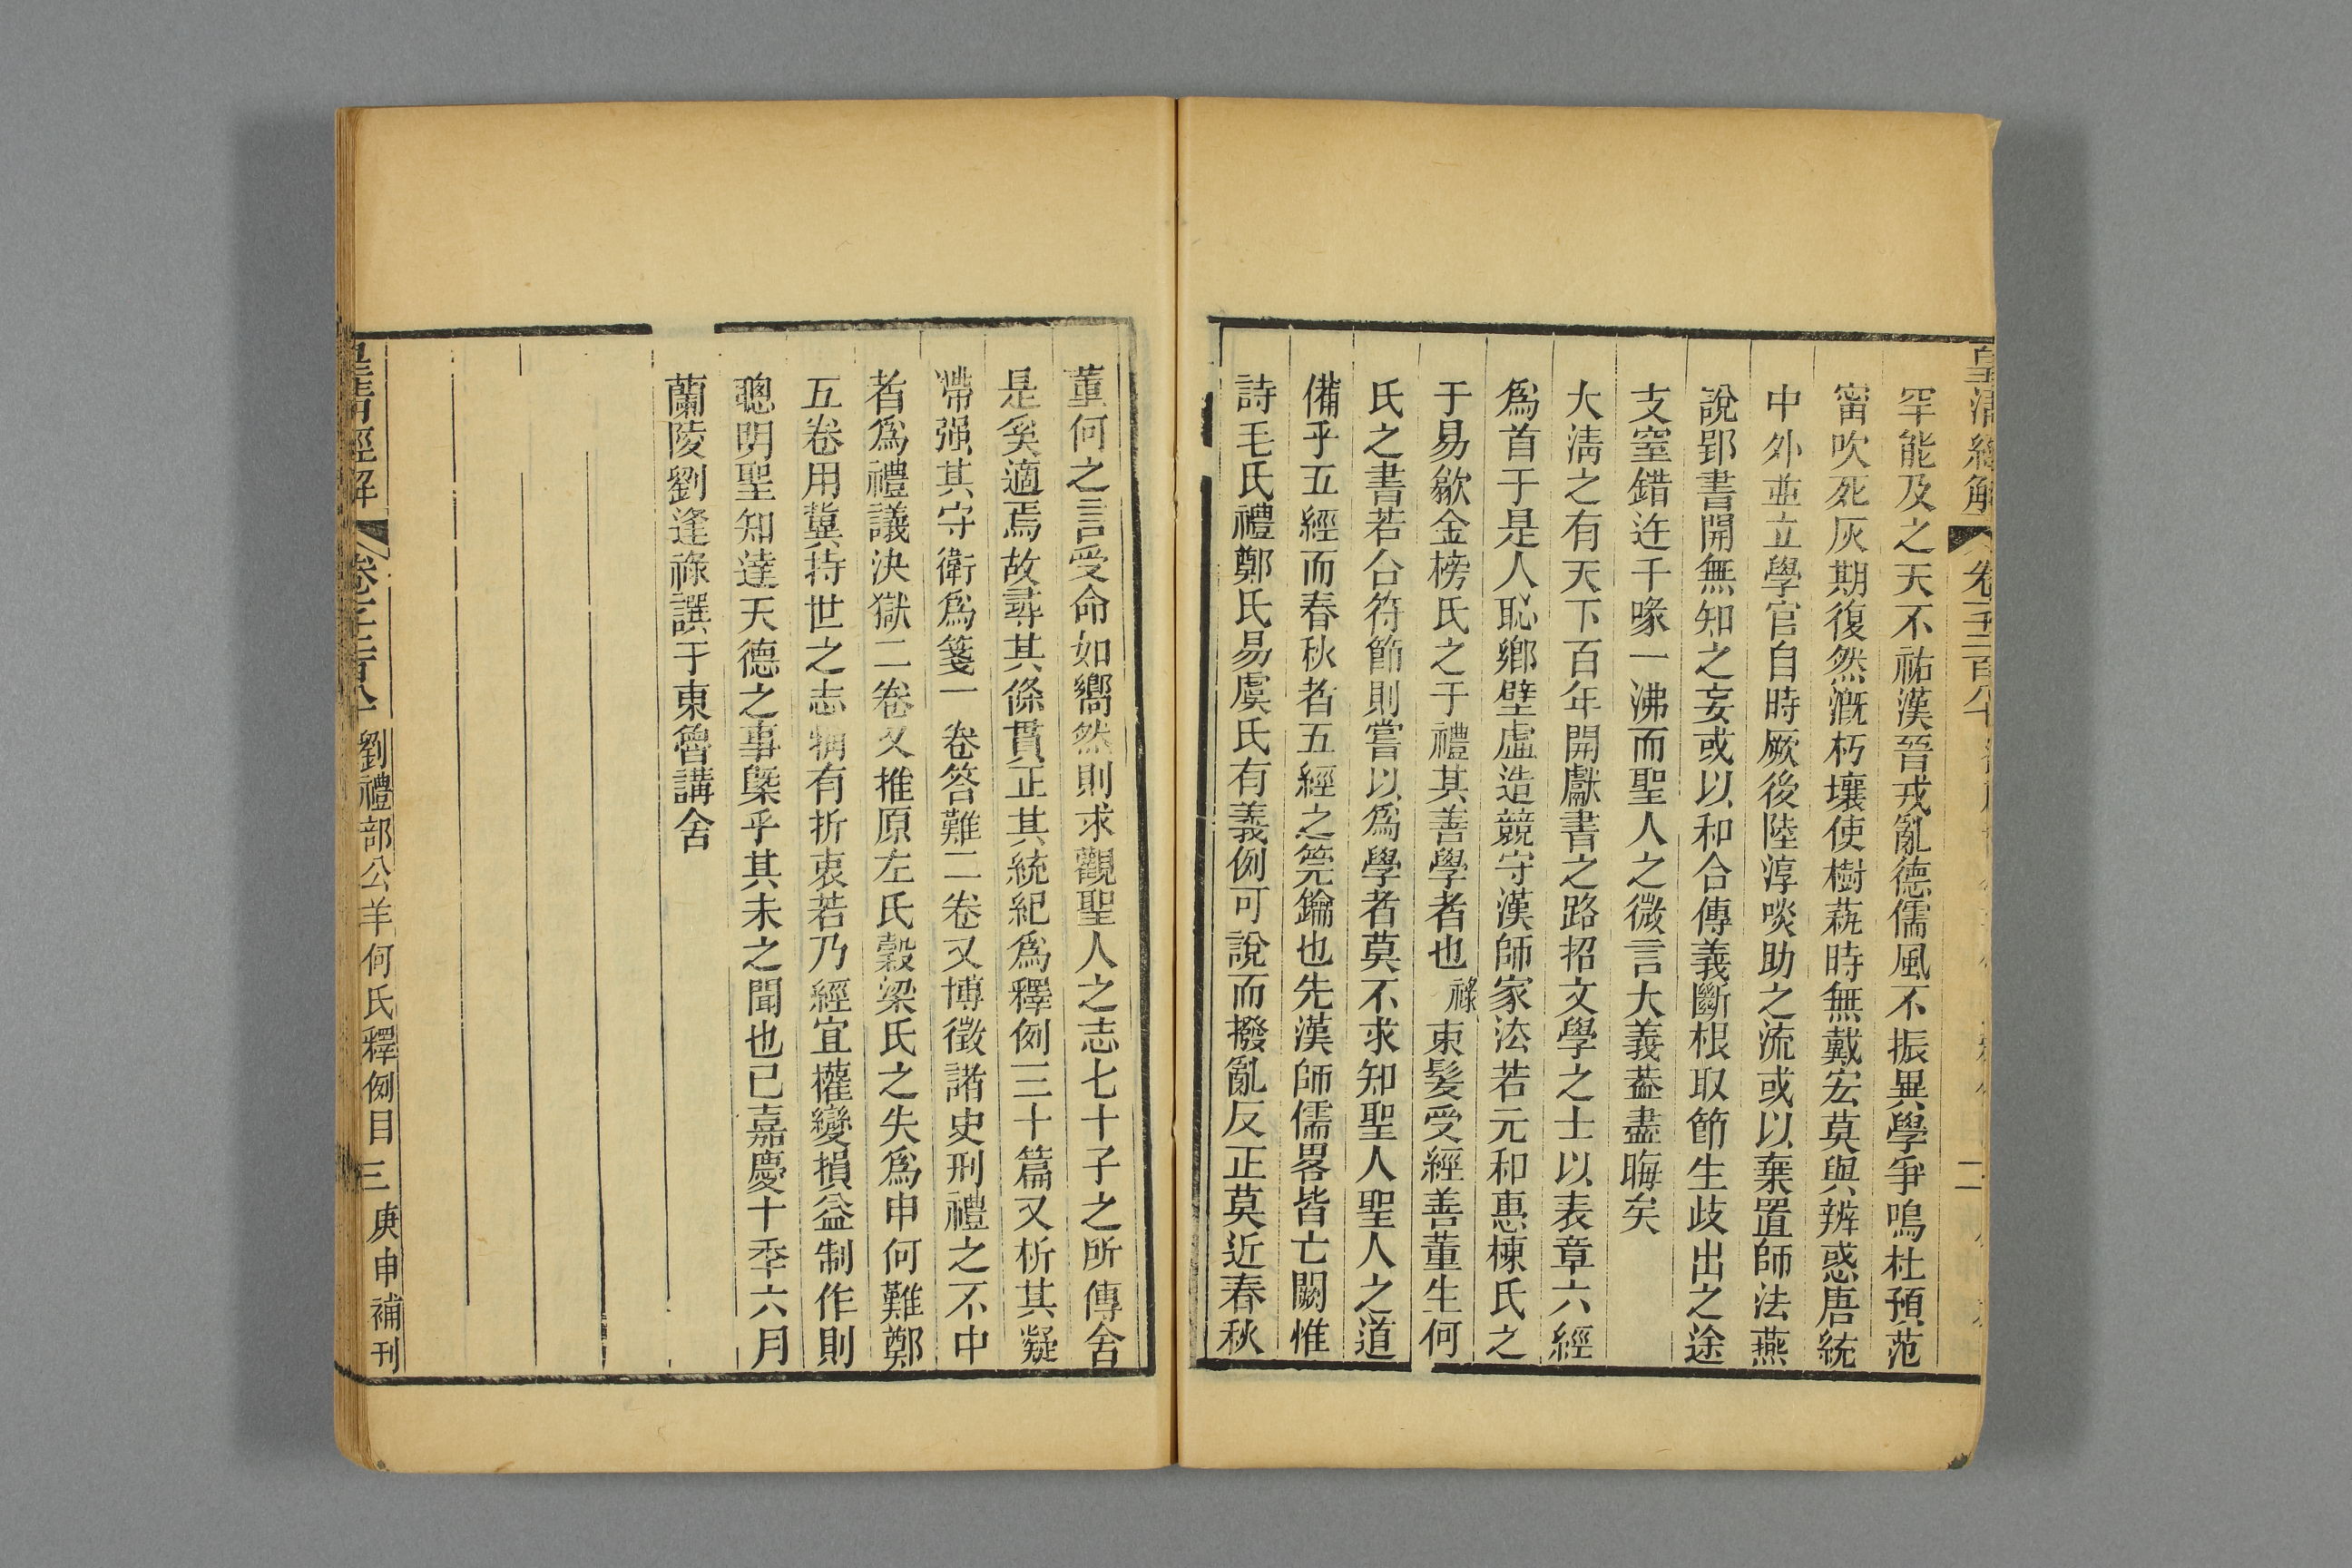 皇清經解
卷一千二百八十
二
罕能及之天不祐漢晉戎亂德儒風不振異學爭鳴杜預范
甯吹死灰期復然溉朽壤使樹蓺時無戴宏莫與辨惑唐統
中外並立學官自時厥後陸淳啖助之流或以棄置師法燕
說郢書開無知之妄或以和合傳義斷根取節生歧出之途
支窒錯迕千喙一沸而聖人之微言大義葢盡晦矣
大淸之有天下百年開獻書之路招文學之士以表章六經
爲首于是人恥鄕壁虛造競守漢師家法若元和惠棟氏之
于易歙金榜氏之于禮其善學者也祿束髮受經善董生何
氏之書若合符節則嘗以爲學者莫不求知聖人聖人之道
備乎五經而春秋者五經之筦鑰也先漢師儒畧皆亡闕惟
詩毛氏禮鄭氏易虞氏有義例可說而撥亂反正莫近春秋
董何之言受命如嚮然則求觀聖人之志七十子之所傳舍
是奚適焉故尋其條貫正其統紀爲釋例三十篇又析其凝
滯强其守衛爲箋一卷答難二卷又博徵諸史刑禮之不中
者爲禮議決獄二卷又推原左氏穀梁氏之失爲申何難鄭
五卷用冀持世之志觕有折衷若乃經宜權變損益制作則
聰明聖知達天德之事槩乎其未之聞也已嘉慶十秊六月
蘭陵劉逢祿譔于東魯講舍
皇淸經解
卷千二百八十
劉禮部公羊何氏釋例目
三
庚申補刊